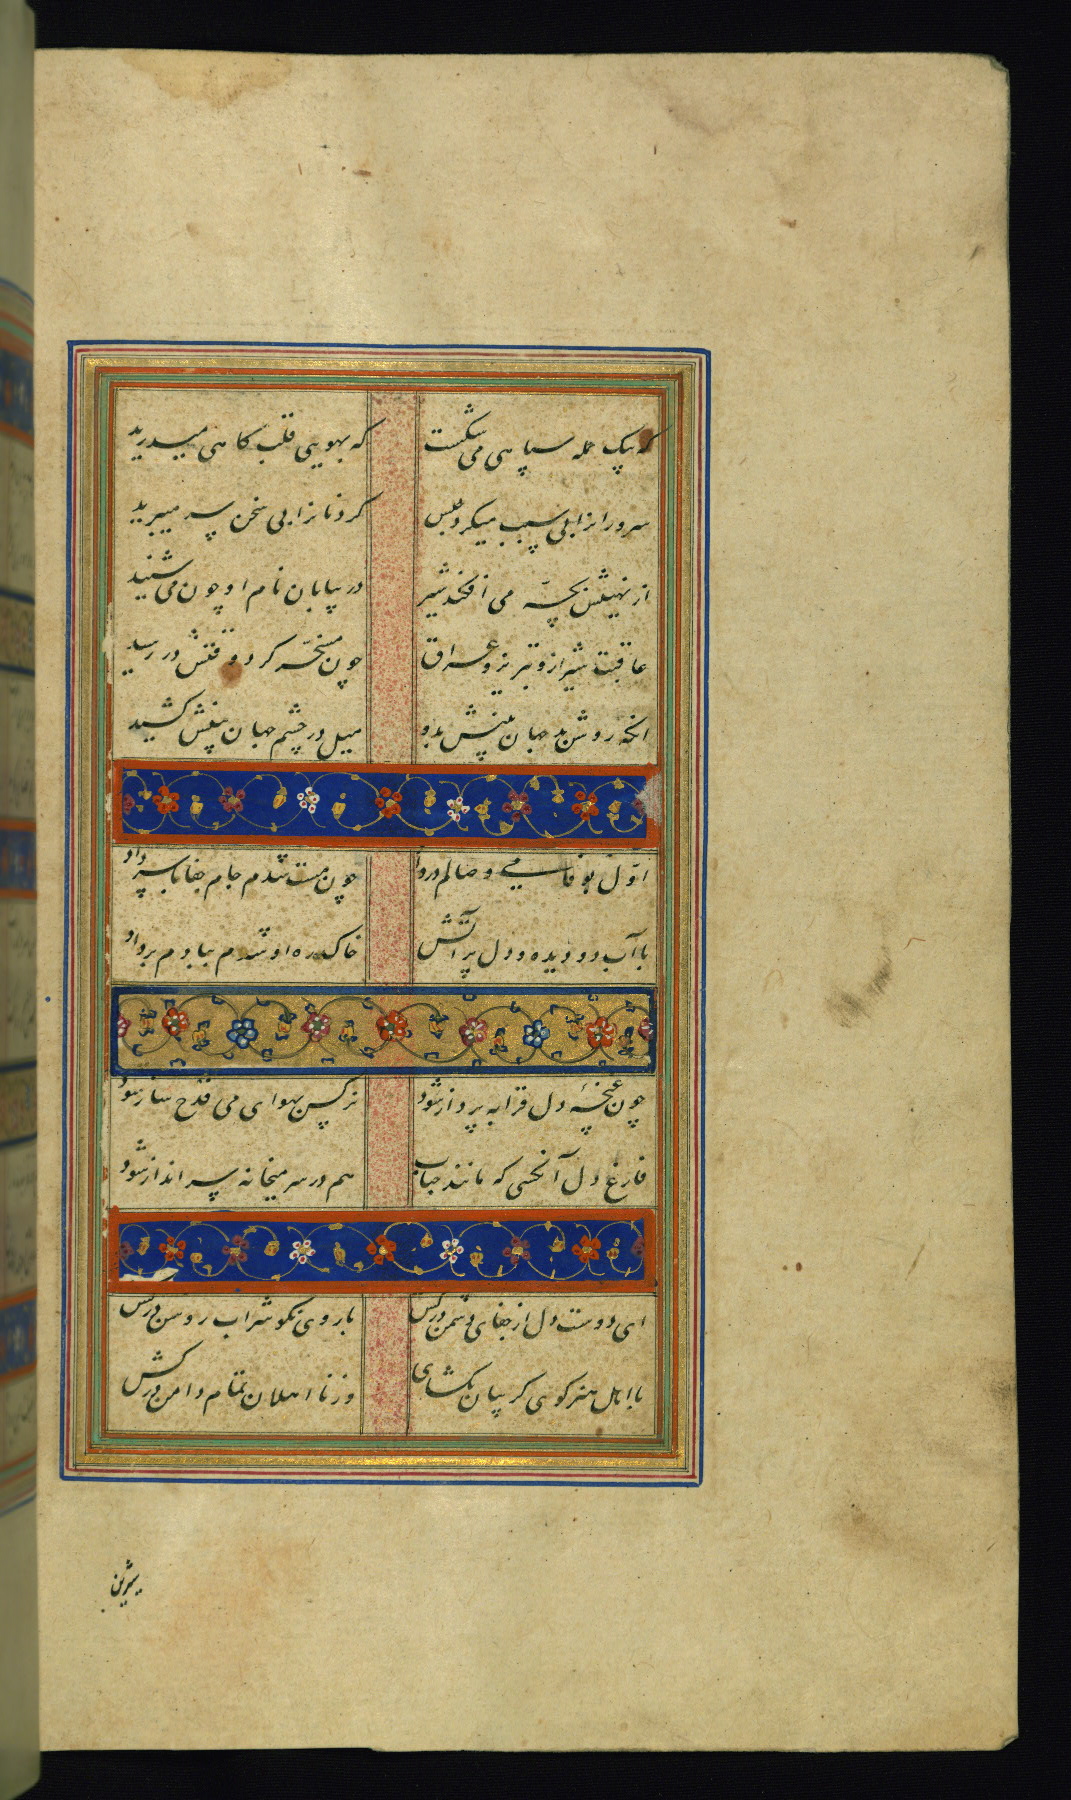 که بیک حمله سپاهی می شکست که بهویی قلب کاهی میدرید
سرورانرا بی سبب میکرد حبس کردنانرا بی سخن سر میبرید
از نهیبش بچه می افکند شیر در بیابان نام او چون می شنید
عاقبت شیراز و تبریز و عراق چون مسخر کرد وقتش در رسید
انکه روشن بد جهان بینش بدو میل در چشم جهان بینش کشید
اول بوفا می وصالم درداد چون مست شدم جام جفا را سر داد
با آب دو دیده و دل پر آتش خاک ره او شدم ببادم بر داد
چون غنچه دل قرابه پرداز شود نرکس بهوای می قدح ساز شود
فارغ دل آنکسی که مانند حباب هم در سر میخانه سر انداز شود
ای دوست دل از جفای دشمن درکش با روی نکو شراب روشن درکش
با اهل هنر کوی کریبان بکشای وز نااهلان تمام دامن درکش